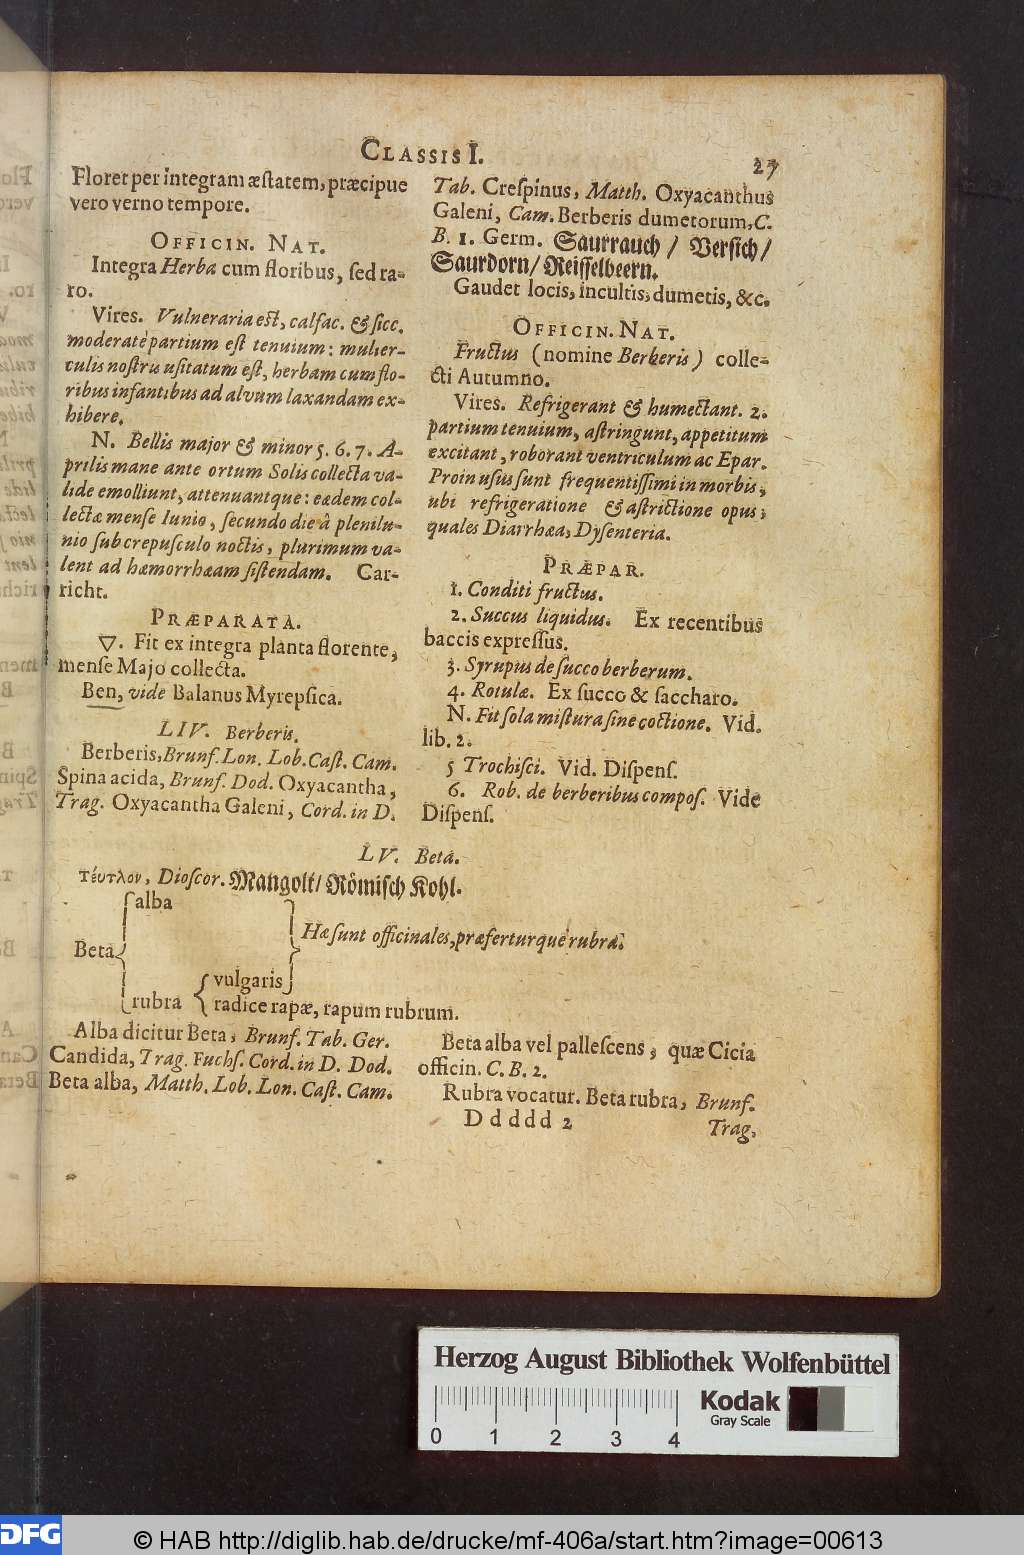 CLASSIS I.
27
Floret per integram æstatem, præcipue
vero verno tempore.
OFFICIN. NAT.
Integra Herba cum floribus, sed ra-
ro.
Vires. Vulneraria est, calfac. & sicc.
moderate partium est tenuium: mulier-
culis nostris usitatum est, herbam cum flo-
ribus infantibus ad alvum laxandam ex-
hibere.
N. Bellis major & minor 5. 6. 7. A-
prilis mane ante ortum Solis collecta va-
lide emolliunt, attenuantque: eædem col-
lectæ mense Iunio, secundo die â plenilu-
nio sub crepusculo noctis, plurimum va-
lent ad hæmorrhæam sistendam. Car-
richt.
PRÆPARATA.
🜄. Fit ex integra planta florente,
mense Majo collecta.
Ben, vide Balanus Myrepsica.
LIV. Berberis.
Berberis, Brunf. Lon. Lob. Cast. Cam.
Spina acida, Brunf. Dod. Oxyacantha,
Trag. Oxyacantha Galeni, Cord. in D.
Tab. Crespinus, Matth. Oxyacanthus
Galeni, Cam. Berberis dumetorum, C.
B. 1. Germ. Saurrauch / Versich /
Saurdorn / Reisselbeern.
Gaudet locis, incultis, dumetis, &c.
OFFICIN. NAT.
Fructus (nomine Berberis) colle-
cti Autumno.
Vires. Refrigerant & humectant. 2.
partium tenuium, astringunt, appetitum
excitant, roborant ventriculum ac Epar.
Proin usus sunt frequentissimi in morbis,
ubi refrigeratione & astrictione opus,
quales Diarrhæa, Dysenteria.
PRÆPAR.
1. Conditi fructus.
2. Succus liquidus. Ex recentibus
baccis expressus.
3. Syrupus de succo berberum.
4. Rotulæ. Ex succo & saccharo.
N. Fit sola mistura sine coctione. Vid.
lib. 2.
5 Trochisci. Vid. Dispens.
6. Rob. de berberibus compos. Vide
Dispens.
LV. Beta.
Τέυτλον, Dioscor. Mangolt / Römisch Kohl.
alba
Hæ sunt officinales, præferturque rubra.
Beta
vulgaris
rubra
radice rapæ, rapum rubrum.
Alba dicitur Beta, Brunf. Tab. Ger.
Candida, Trag. Fuchs. Cord. in D. Dod.
Beta alba, Matth. Lob. Lon. Cast. Cam.
Beta alba vel pallescens, quæ Cicia
officin. C. B. 2.
Rubra vocatur. Beta rubra, Brunf.
Ddddd 2
Trag,
Herzog August Bibliothek Wolfenbüttel
0 1 2 3 4
Kodak
Gray Scale
DFG
© HAB http://diglib.hab.de/drucke/mf-406a/start.htm?image=00613